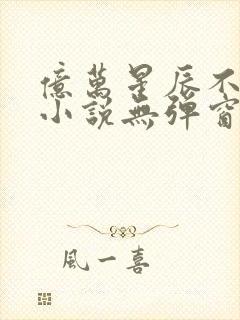 億萬星辰不
小說無彈窗
風一喜